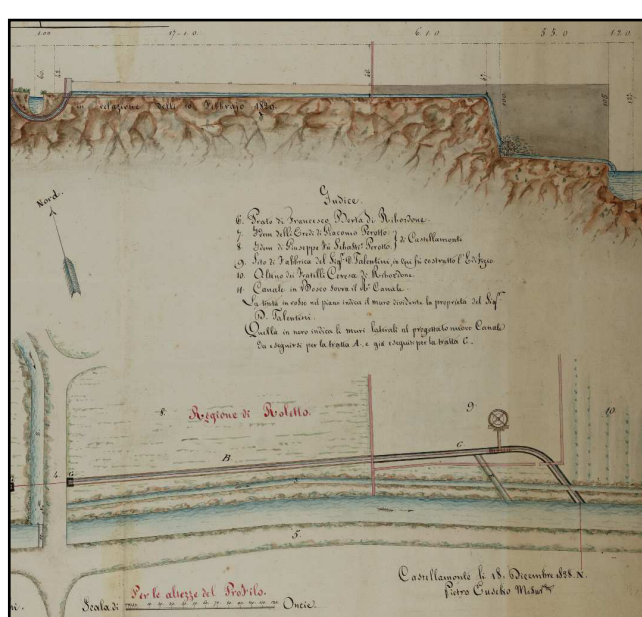 1.00 17.1.0. 6.1.0 5.5.0 1.2.0
in relazione delli 10 Febbraio 1829.
Nord.
Indice.
6. Prato di Francesco Berta di Richordone.
7. Idem delli Eredi di Giacomo Perotto. } di Castellamonte
8. Idem di Giuseppe fù Sebastno Perotto.
9. Sito di Fabbrica del Sigr D. Talentini, in cui fù costrutto l'Edifizio.
10. Alteno dei Fratelli Ceresa de Richordone.
11. Canale in Bosco sovra il do Canale.
La tinta in rosso nel piano indica il muro dividente la proprietà del Sigr
D. Talentini.
Quella in nero indica li muri laterali al progettato nuovo Canale
da eseguirsi per la tratta A. e già eseguiti per la tratta C.
8. Regione di Roletto. 9 10.
B C
4.
5.
Castellamonte li 18. Dicembre 1828. N.
Pietro Cuseho Misur
Per le altezze del Profilo.
Scala di Oncie.